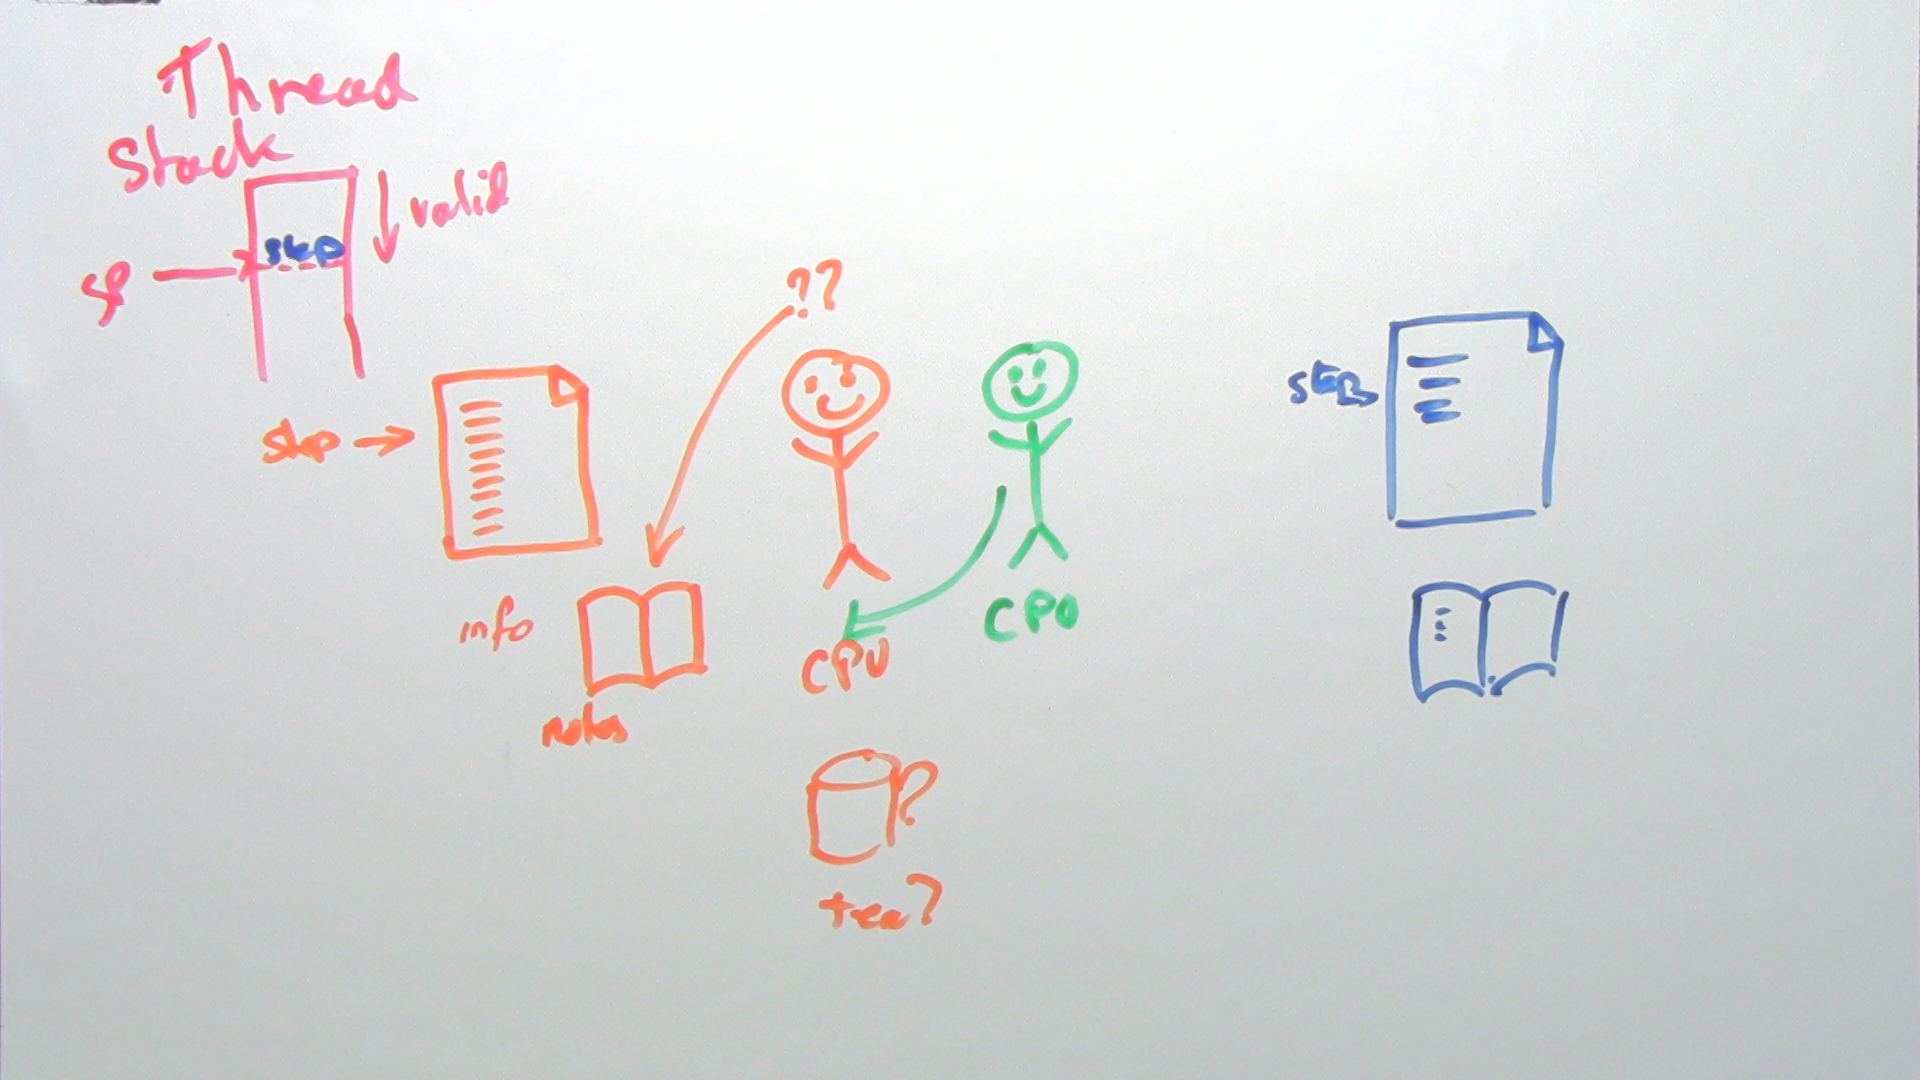 Thread
Stack
valid
step
SP
??
step
step
info
notes
CPU
CPU
?
tea?